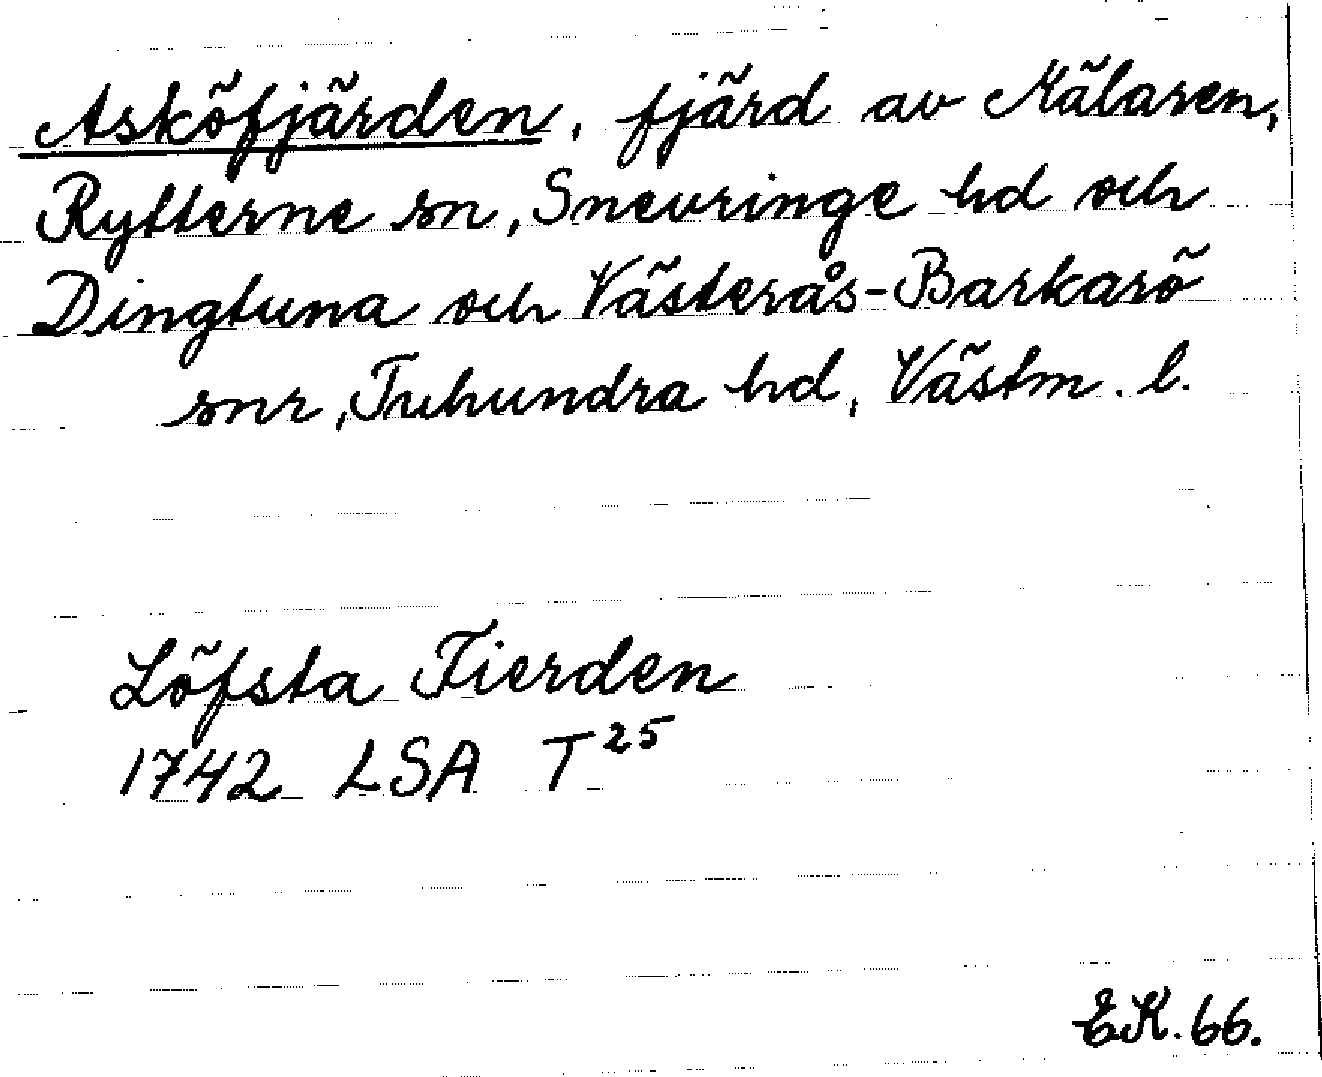 Asköfjärden, fjärd av Mälaren,
Rytterne sn, Snevringe hd och
Dingtuna och Västerås-Barkarö
snr, Tuhundra hd, Västm. l.
Löfsta Fierden
1742 LSA T²⁵
EK. 66.